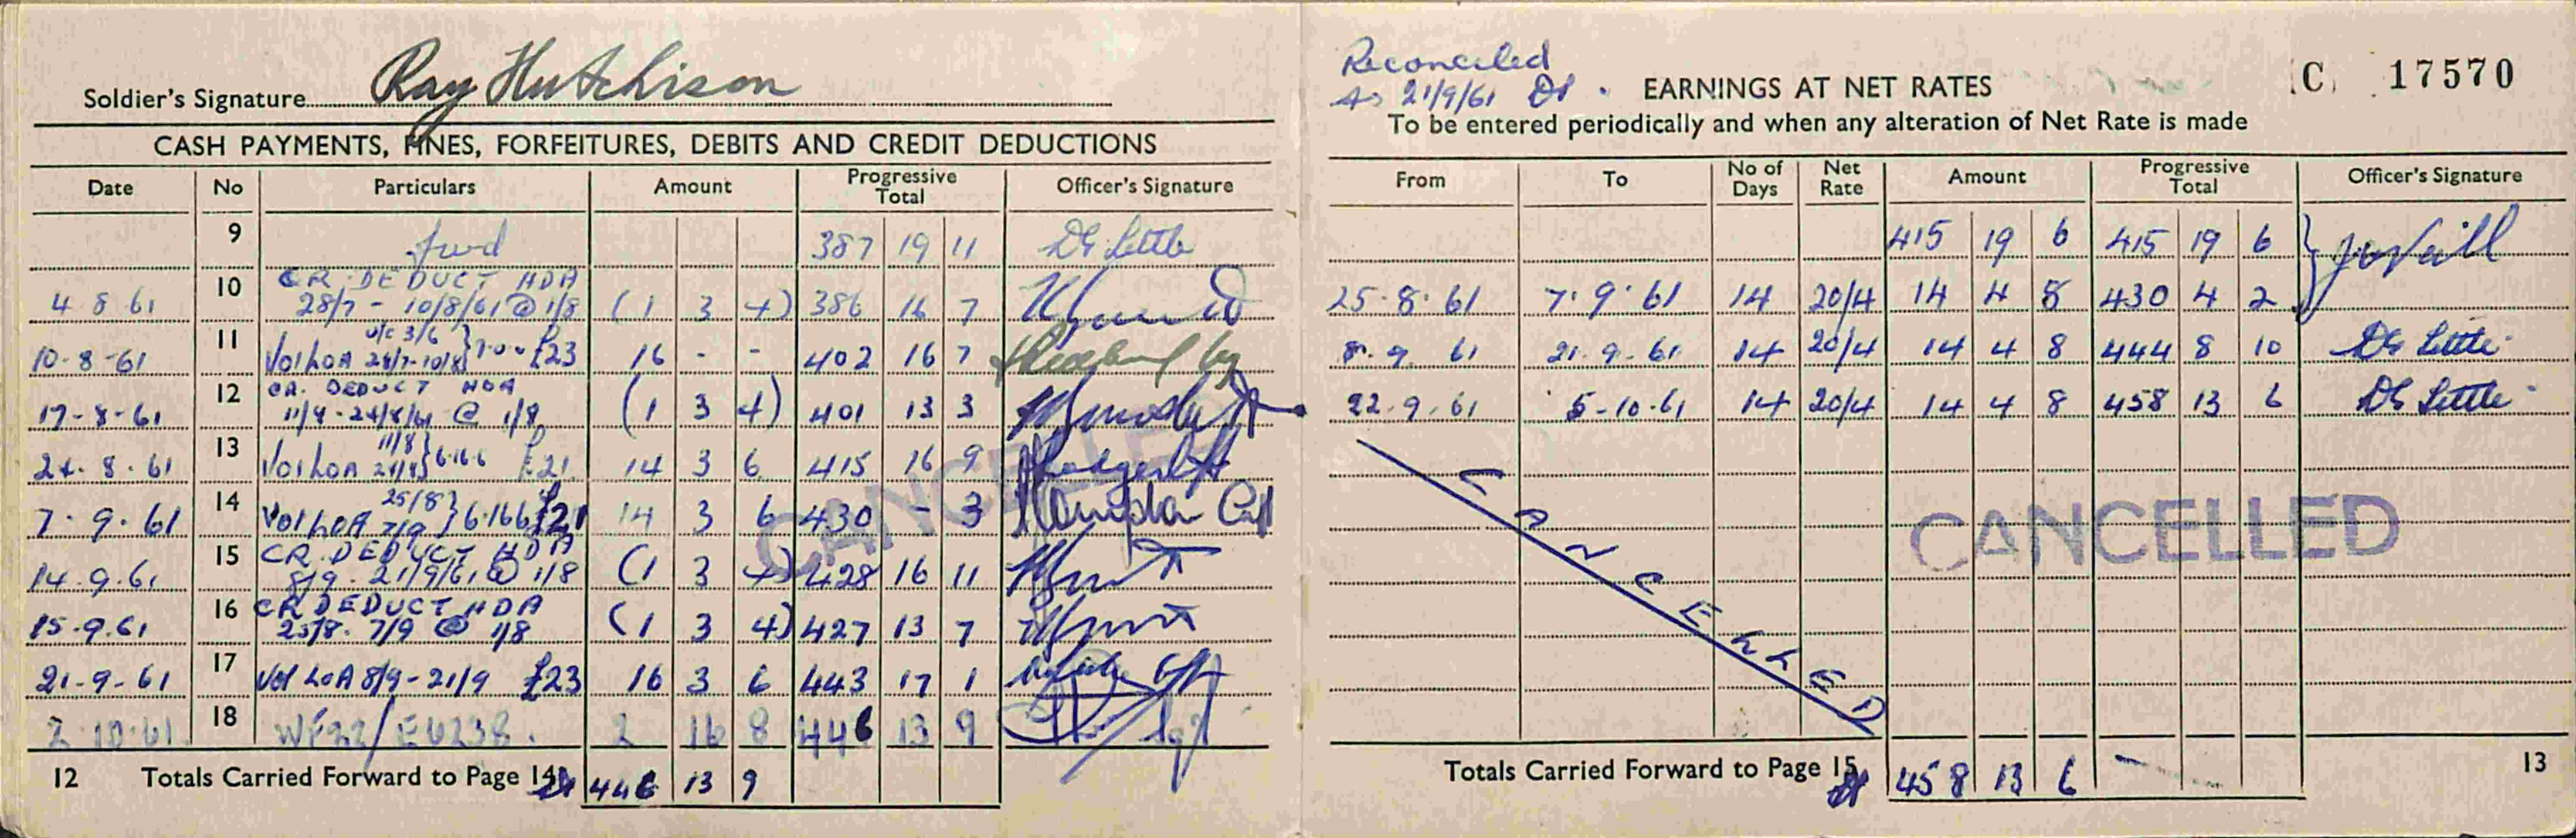 Soldier's Signature Ray Hutchison
CASH PAYMENTS, FINES, FORFEITURES, DEBITS AND CREDIT DEDUCTIONS
Date No Particulars Amount Progressive Total Officer's Signature
9 fwd 387 19 11 DG Little
10 CR. DEDUCT HDA
4 8 61 28/7 - 10/8/61 @ 1/8 (1 3 4) 386 16 7
11 u/c 3/6
10-8-61 Vol LOA 28/7-10/8} 7-0-0 £23 16 - - 402 16 7
12 CR. DEDUCT HDA
17-8-61 11/8-24/8/61 @ 1/8 (1 3 4) 401 13 3
13 11/8
24.8.61 Vol LOA 24/8} 6.16.6 £21 14 3 6 415 16 9
14 25/8
7.9.61 Vol LOA 7/9} 6.16 6 £21 14 3 6 430 - 3
15 CR. DEDUCT HDA
14.9.61 8/9. 21/9/61 @ 1/8 (1 3 4) 428 16 11
16 CR DEDUCT HDA
15.9.61 25/8. 7/9 @ 1/8 (1 3 4) 427 13 7
17
21-9-61 Vol LOA 8/9-21/9 £23 16 3 6 443 17 1
18
2.10.61. WF22/EU238. 2 16 8 446 13 9
CANCELLED
12 Totals Carried Forward to Page 14 446 13 9
Reconciled
As 21/9/61
EARNINGS AT NET RATES
C 17570
To be entered periodically and when any alteration of Net Rate is made
From To No of Days Net Rate Amount Progressive Total Officer's Signature
415 19 6 415 19 6
25.8.61 7.9.61 14 20/4 14 4 8 430 4 2
8.9.61 21.9.61 14 20/4 14 4 8 444 8 10 DG Little
22.9.61 5-10-61 14 20/4 14 4 8 458 13 6 DG Little
CANCELLED
CANCELLED
Totals Carried Forward to Page 15 458 13 6
13